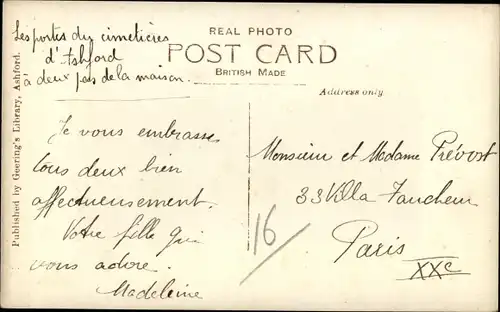 Les portes du cimetières
d'Ashford
à deux pas de la maison.
REAL PHOTO
POST CARD
BRITISH MADE
Address only.
Published by Geering's Library, Ashford.
Je vous embrasse
tous deux bien
affectueusement.
Votre fille qui
vous adore.
Madeleine
16
Monsieur et Madame Prévost
33 Villa Faucheur
Paris
XXe